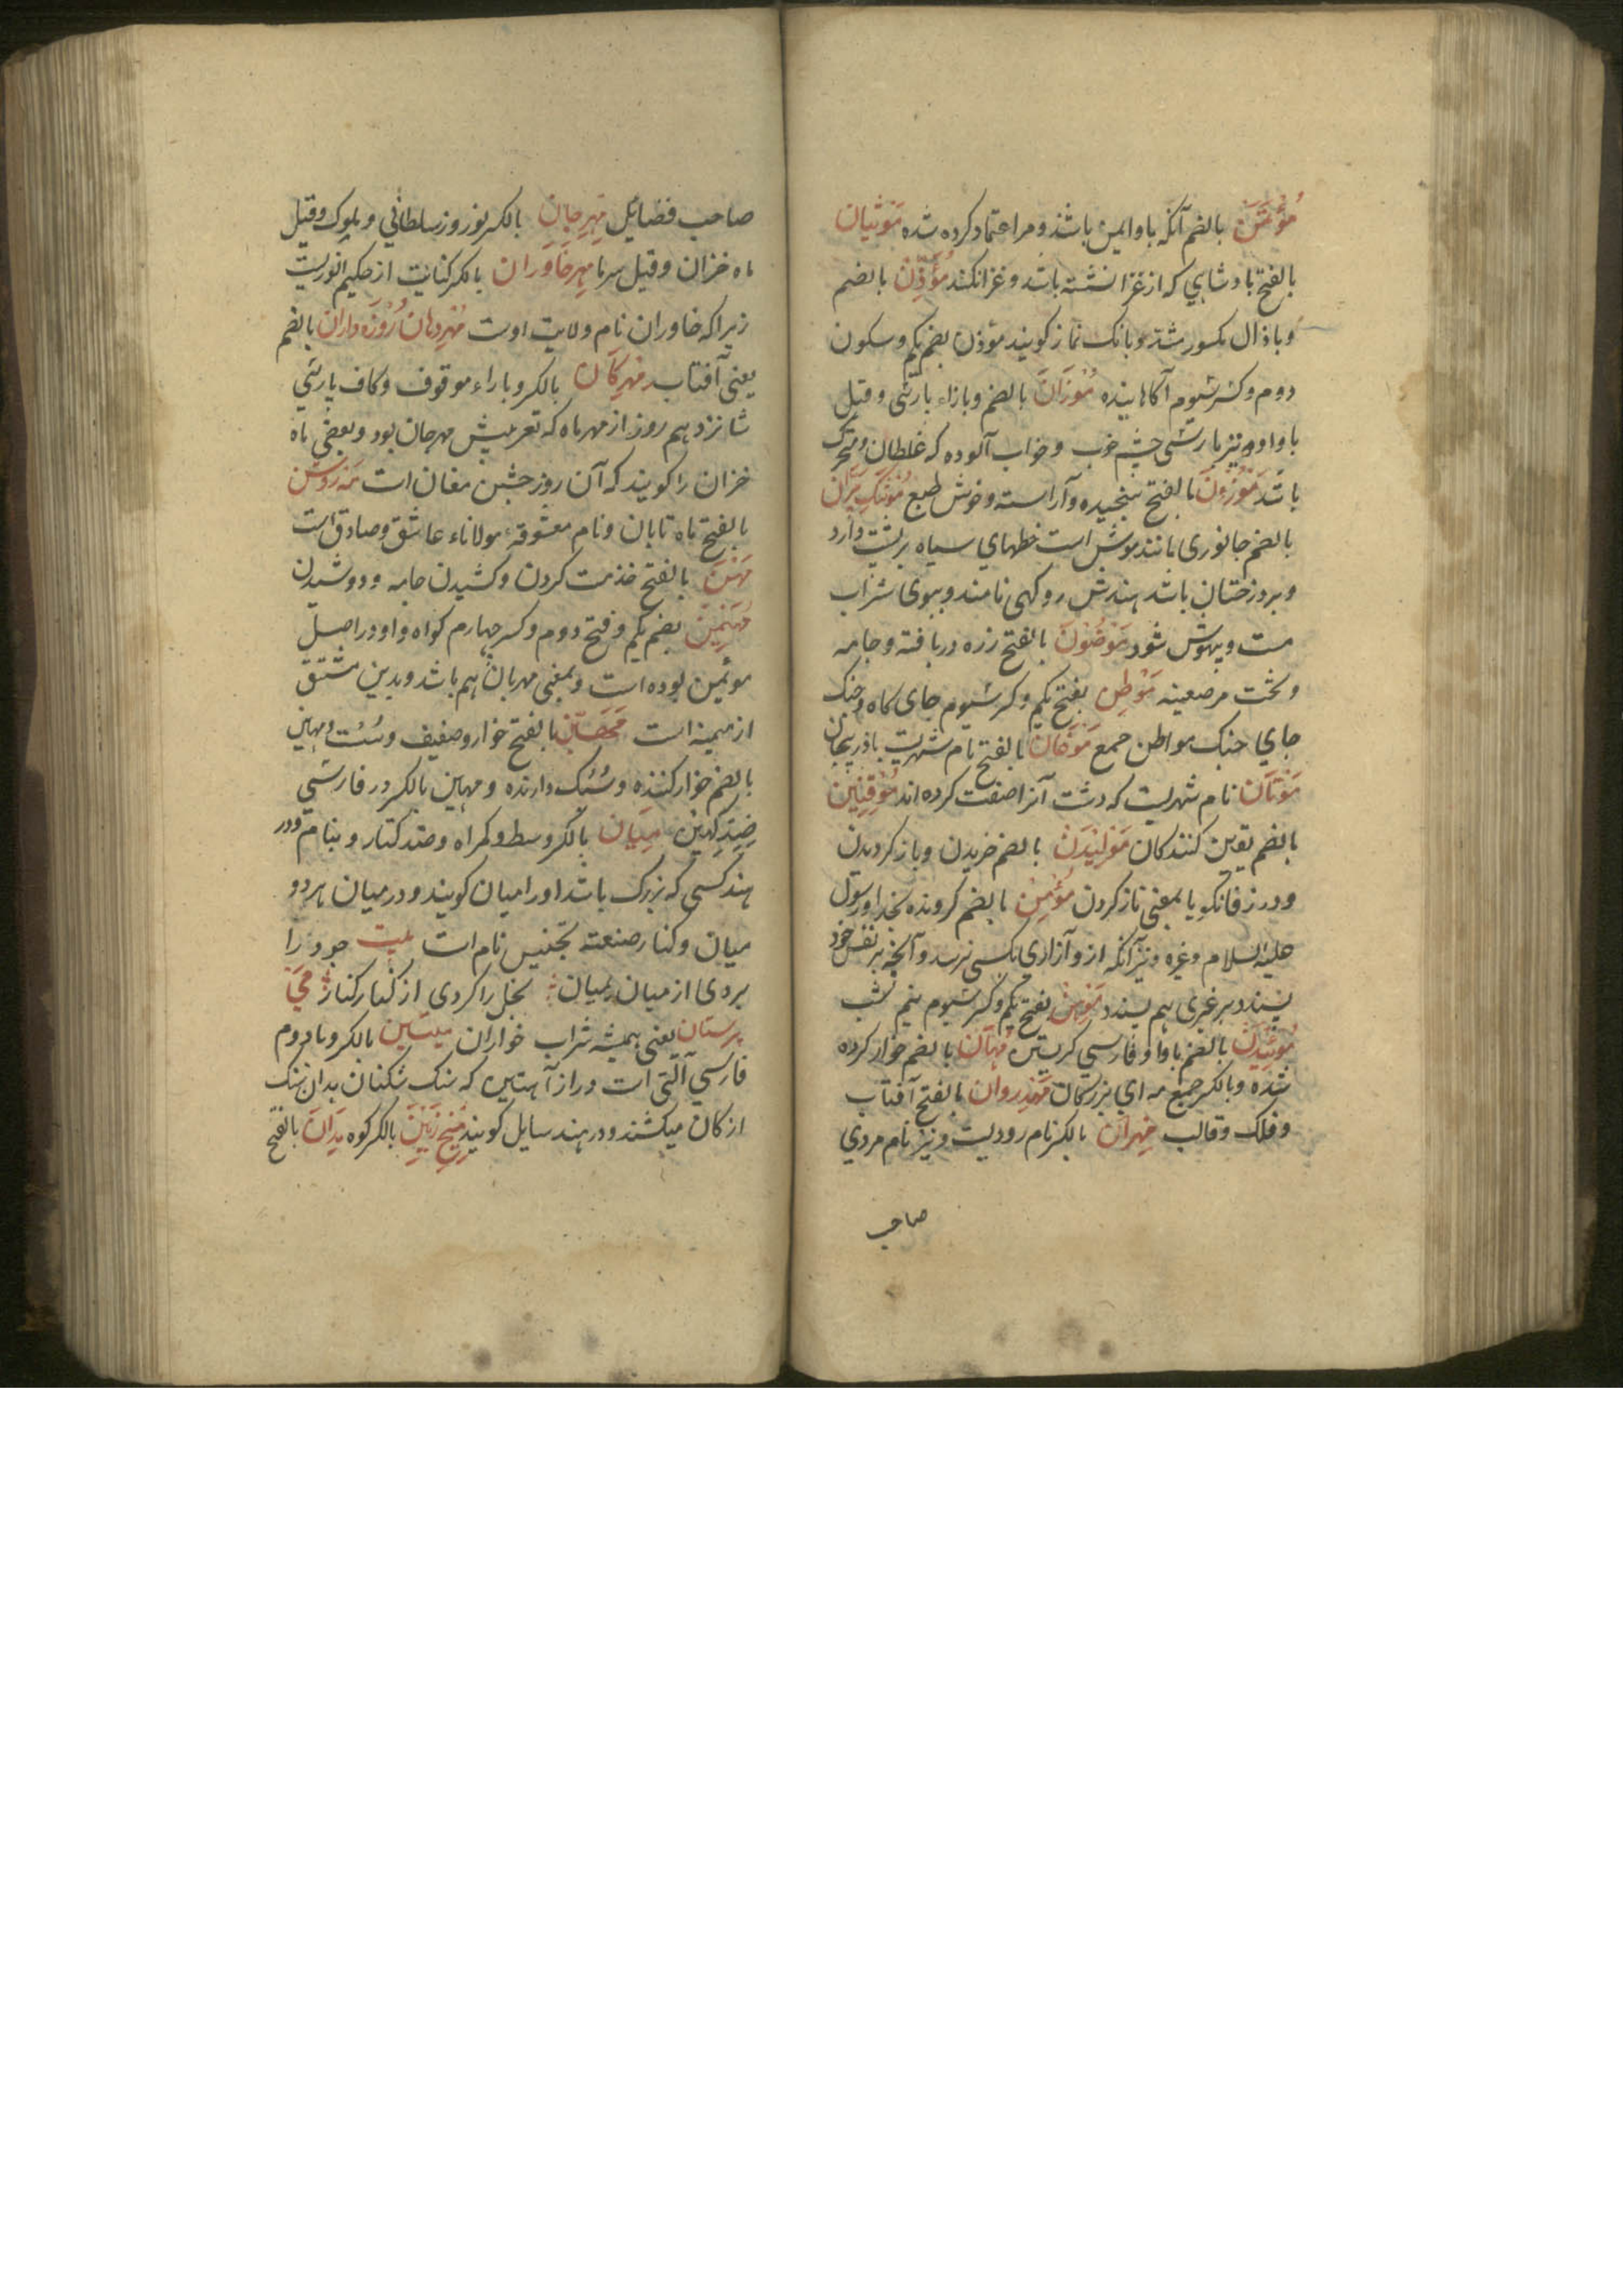 مُؤْتَمَن بالضم آنکه باو ایمن باشند و مر اعتماد کرده شده مَوْثبان
بالفتح بادشاهي که از غزا نشسته باشد و غزا نکند مُؤَذِّن بالضم
و با ذال مکسور مشدد بانک نماز گویند موذن بضم یکم و سکون
دوم و کسر سیوم آکاهانیده مُوْزَان بالضم و با زاء پارسی و قیل
با واو نیز پارسی چشم خوب و خواب آلوده که غلطان و متحرک
باشد مَوْزُوْن بالفتح سنجیده و آراسته و خوش طبع مُوْشَک پَرّان
بالضم جانوری مانند موش است خطهاي سیاه بر پشت دارد
و بر درختان باشد هندش روکهی نامند و ببوی شراب
مست و بیهوش شود مَوْضُوْن بالفتح زره در بافته و جامه
و تخت مرصعینه مَوْطِن بفتح یکم و کسر سیوم جای کاه و جنک
جاي جنک مواطن جمع مَوْقَان بالفتح نام شهریست باذربیجان
مَوْتَان نام شهریست که دشت آنرا صفت کرده اند مُوْقِنِیْن
بالضم یقین کنندکان مَوْلِیْدَن بالضم خزیدن و باز کردیدن
و در زفانکویا بمعنی ناز کردن مُؤْمِن بالضم کرونده بخدا و رسول
علیه السلام و غیره و نیز آنکه ازو آزاری بکسی نرسد و آنچه بر نفس خود
پسندد بر غیری هم پسندد مَوْهِن بفتح یکم و کسر سیوم نیم شب
مُوْئِیدَن بالضم با واو فارسي کریستن مُهَان بالضم خوار کرده
شده و بالکسر جمع مه ای بزرکان مَهْدِروان بالفتح آفتاب
و فلک و قالب مِهْران بالکسر نام رودیست و نیز نام مردي
صاحب
صاحب فضایل مِهْرِجان بالکسر نوروز سلطاني و ملوک و قیل
ماه خزان و قیل سرما مِهرِ خَاوَران بالکسر کنایت از حکیم انوریست
زیرا که خاوران نام ولایت اوست مُهْرِ دهان رُوْزه داران بالضم
یعنی آفتاب مِهْرِکَان بالکسر و با راء موقوف و کاف پارسي
شانزدهم روز از مهرماه که تعریبش مهرجان بود و بعضی ماه
خزان را کویند که آن روز جشن مغان است مَه رَوْشَن
بالفتح ماه تابان و نام معشوقهٔ مولاناء عاشق و صادق است
مَهْن بالفتح خذمت کردن و کشیدن جامه و دوشیدن
مُهَیْمِن بضم یکم و فتح دوم و کسر چهارم کواه و او در اصل
موئمن بوده است و بمعنی مهربان هم باشد و بدین مشتق
از میمنه است مَهِیْن بالفتح خوار و ضعیف و سست و مهین
بالضم خوار کننده و سبک دارنده و مهین بالکسر در فارسي
ضدِ کهین مِیَان بالکسر وسط و کمراه و ضد کنار و بنام و در
هند کسی که بزرک باشد او را میان کویند و در میان هر دو
میان و کنار صنعته تجنیس تام است بیت جود را
بردی از میان بمیان بخل را کردی از کنار کنار مَي
پرستان یعنی همیشه شراب خواران مِیتین بالکسر و با دوم
فارسي آلتی است دراز آهنین که سنک شکنان بدان سنک
از کان میکشند و در هند سایل کویند مِیْخِ زمین بالکسر کوه مَیدَان بالفتح